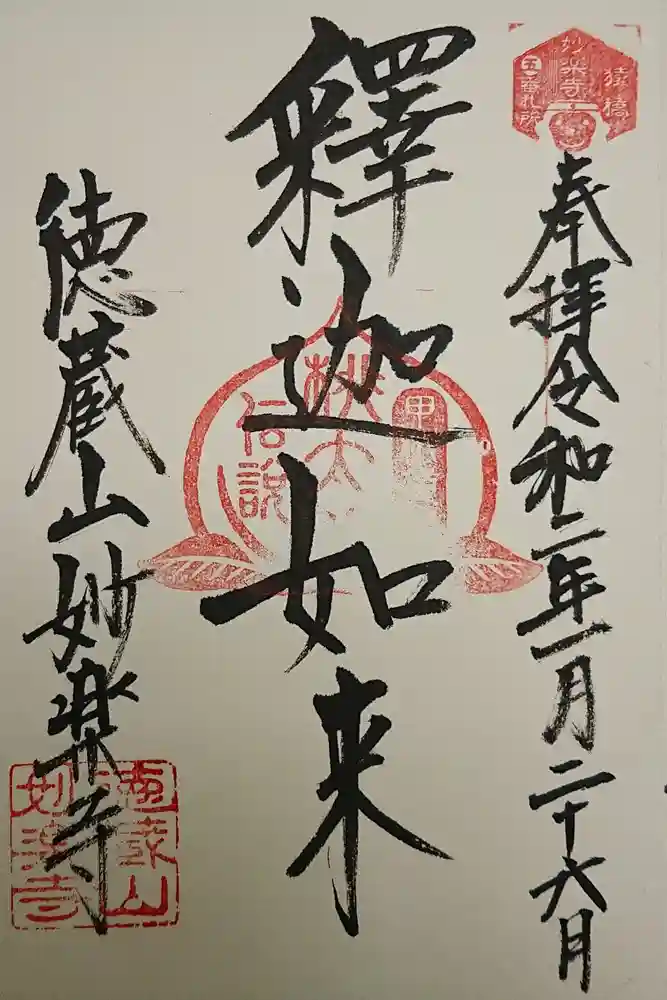 猿橋
妙楽寺
五番札所
奉拝令和二年一月二十六日
釋迦如来
桃太
伝説
徳蔵山妙楽寺
徳蔵山
妙楽寺